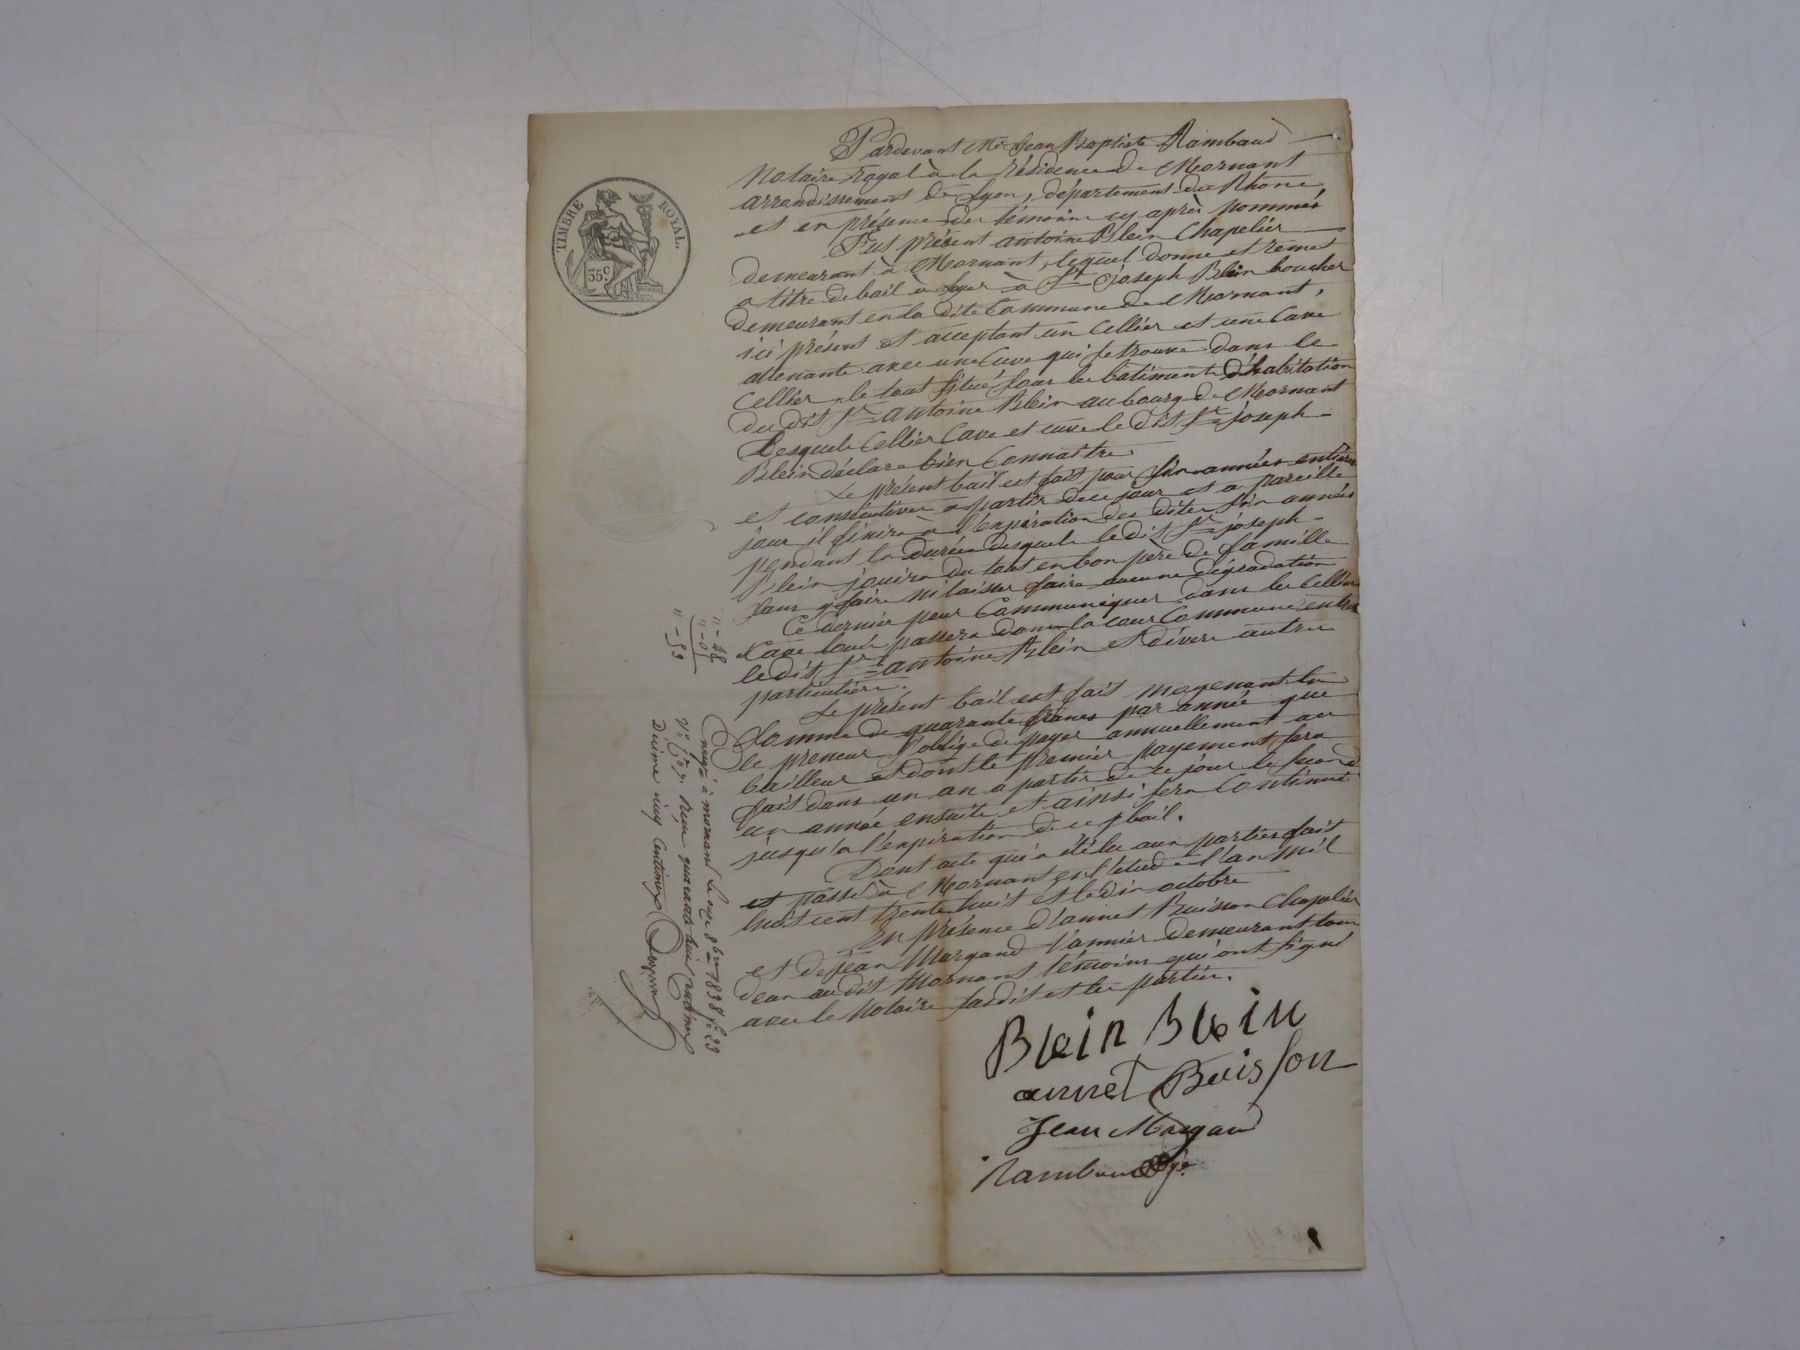 TIMBRE ROYAL.
35 c
Pardevant Me Jean Baptiste Rambaud
Notaire royal à la résidence de Mornant
arrondissement de Lyon, département du Rhône
et en présence des témoins cy après nommés
Fut présent antoine Blein Chapelier
demeurant à Mornant, lequel donne et remet
a titre de bail à loyer à Sr Joseph Blein boucher
demeurant en la dite Commune de Mornant,
ici présent et acceptant un Cellier et une Cave
attenante avec une Cuve qui se trouve dans le
Cellier, le tout situé sous les bâtiments d'habitation
du dit Sr antoine Blein au bourg de Mornant
Lesquels Cellier Cave et cuve le dit Sr joseph
Blein déclare bien Connaître
Le présent bail est fait pour six années entières
et consécutives a partir de ce jour et a pareille
jour il finira à l'expiration des dites six années
pendant la durée desquels le dit Sr joseph
Blein jouira du tout en bon père de famille
sans y faire ni laisser faire aucune dégradation
Ce dernier pour Communiquer dans les Cellier
Cave loués passera dans la cour Commune entre
le dit Sr antoine Blein et divers autres
particuliers.
Le présent bail est fait moyenant la
Somme de quarante francs par année que
le preneur s'oblige de payer annuellement au
bailleur et dont le premier payement sera
fait dans un an a partir de ce jour le second
un année ensuite et ainsi sera Continué
jusqu'a l'expiration de ce pt bail.
Dont acte qui a été lu aux parties fait
et passé à Mornant en l'étude l'an mil
huit cent trente huit et le dix octobre
En présence d'annet Buisson Chapelier
et de jean Margand Vannier demeurant tous
deux au dit Mornant témoins qui ont signé
avec le Notaire susdit et les parties.
Blein Blein
annet Buisson
Jean Margand
Rambaud
" - 48
" - 05
" - 53
Enregé à mornant Le onze 8bre 1838 fo 23
Vo Cse 7. Reçu quarante huit centimes
Décime cinq Centimes